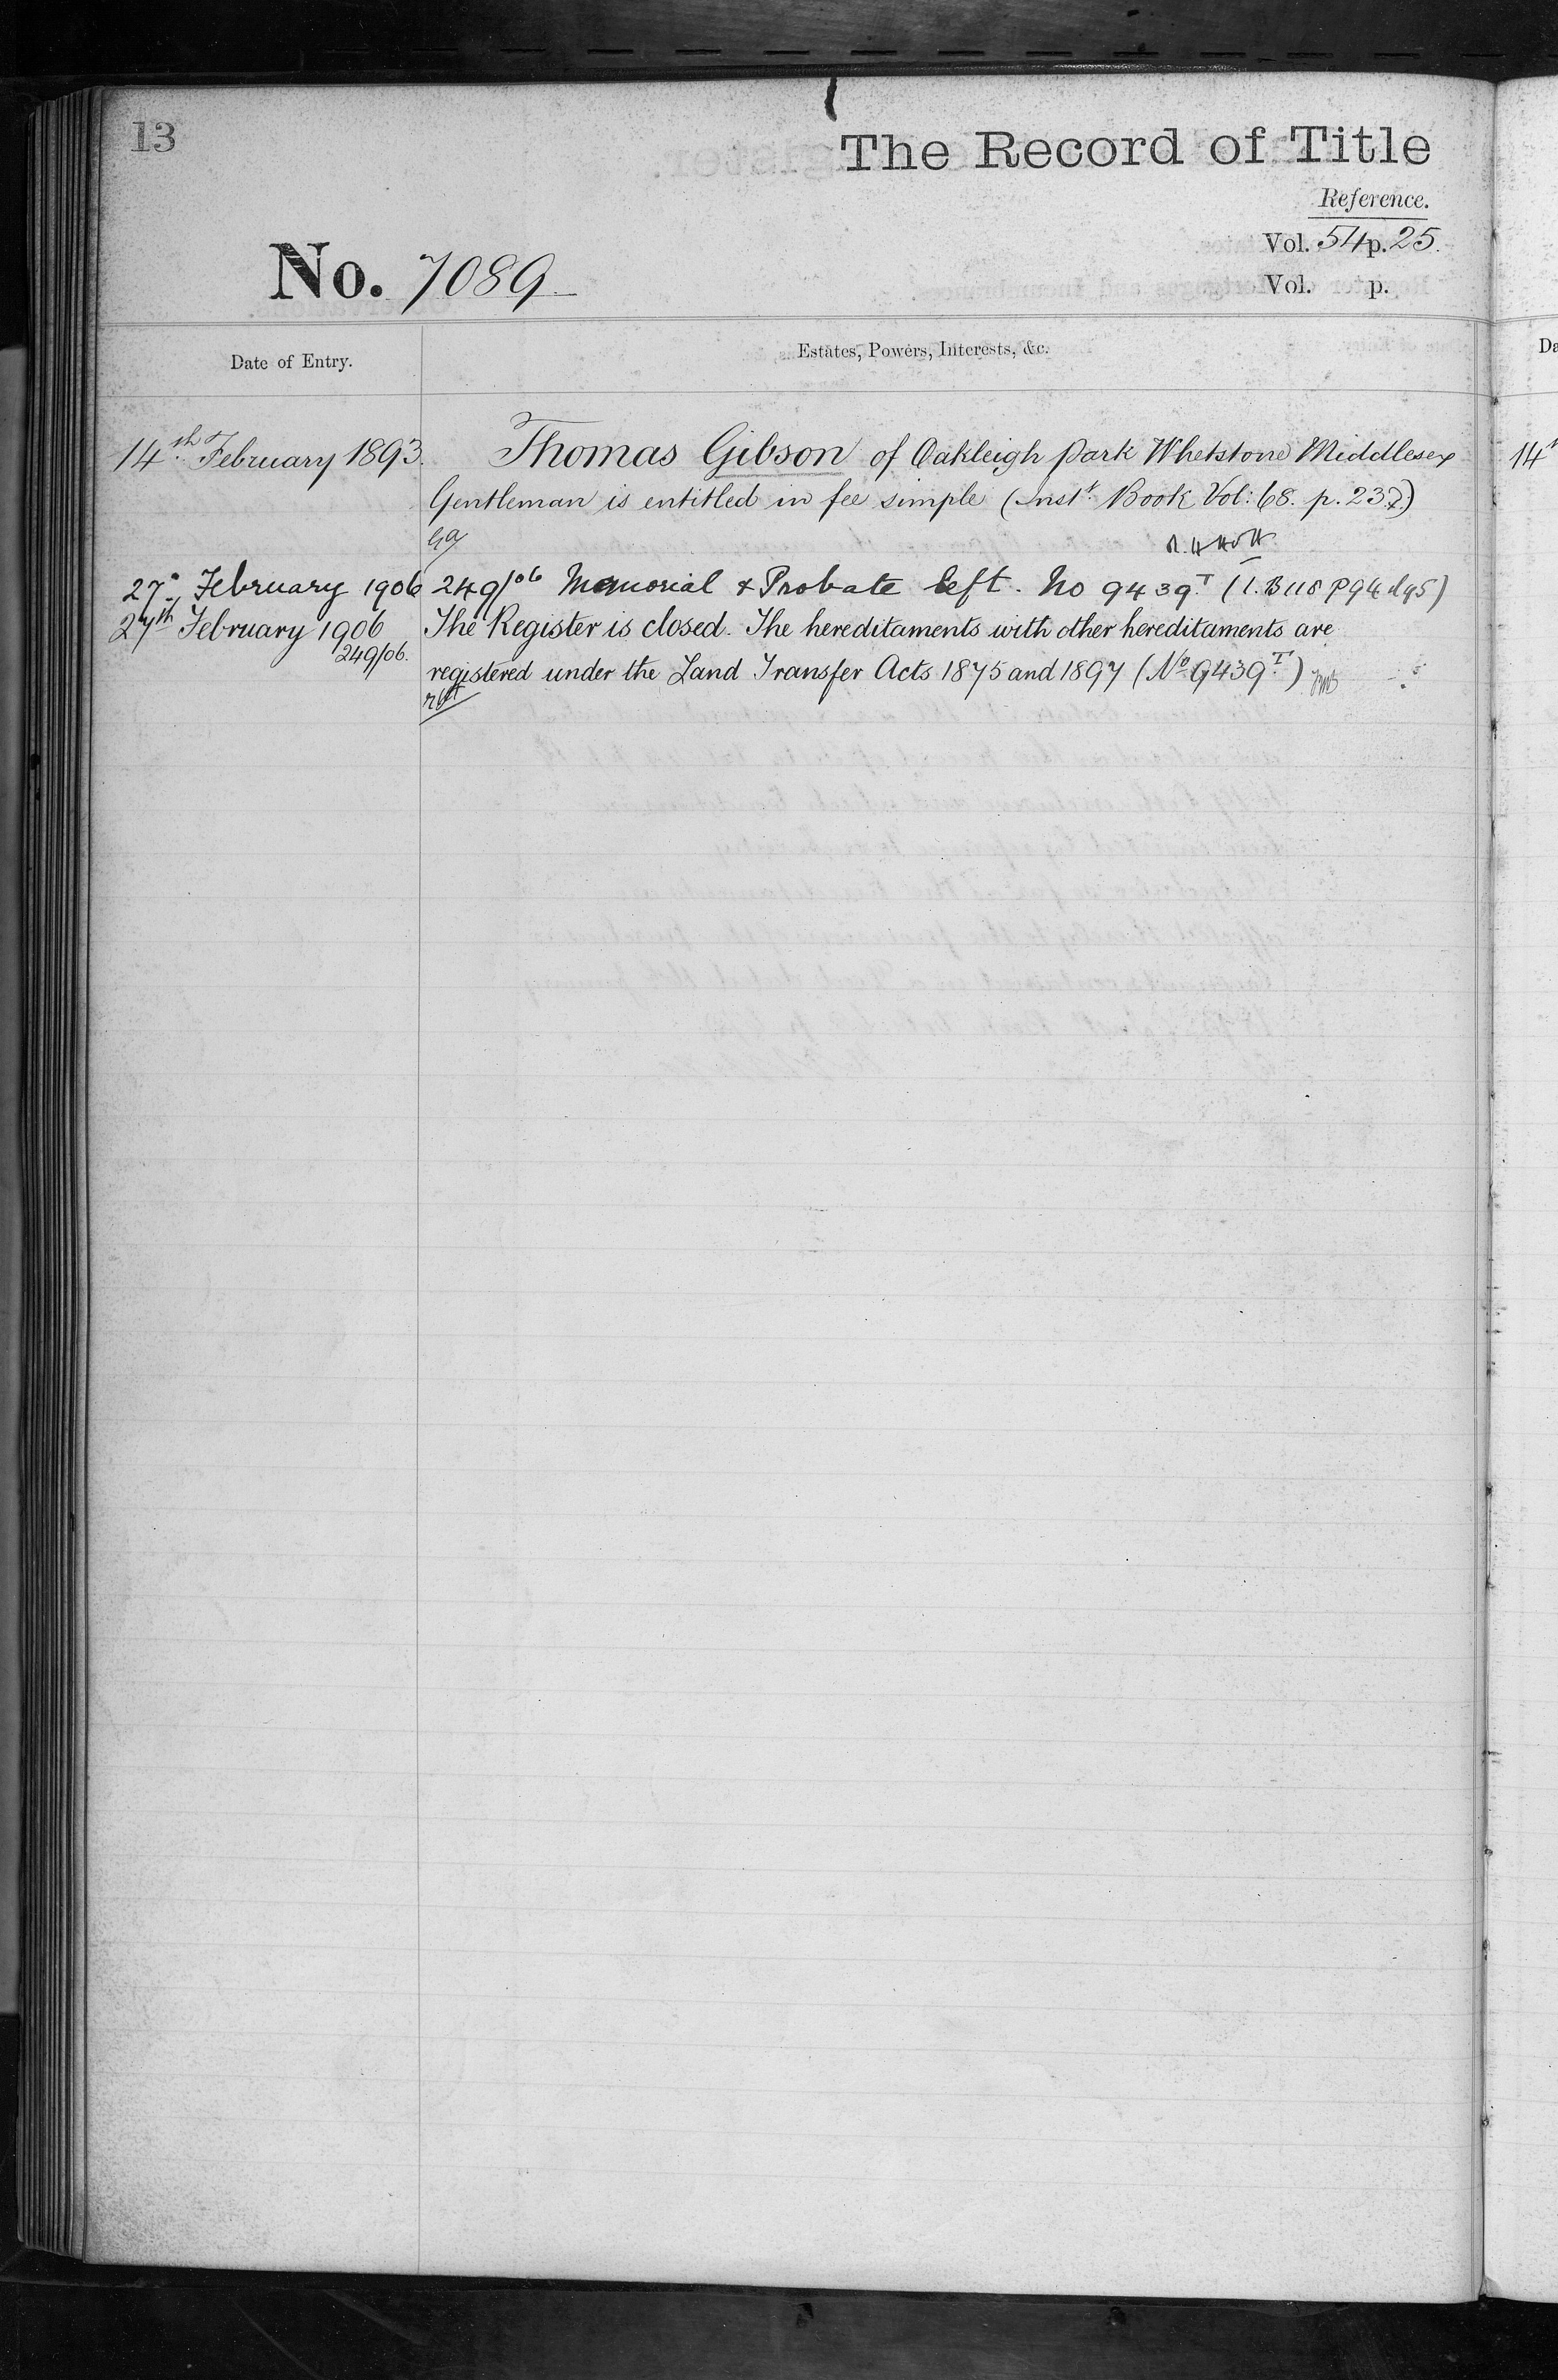 13
The Record of Title
Reference.
Vol. 54 p. 25.
No. 7089
Vol. p.
Date of Entry.
Estates, Powers, Interests, &c.
Da
14th February 1893. Thomas Gibson of Oakleigh Park Whetstone Middlesex
Gentleman is entitled in fee simple (Inst. Book Vol: 68. p. 237.)
27. February 1906 249/06 Memorial & Probate left. No 9439T (I.B 118 P 94 & 95)
27th February 1906 The Register is closed. The hereditaments with other hereditaments are
249/06.
registered under the Land Transfer Acts 1875 and 1897 (No 9439T)
14